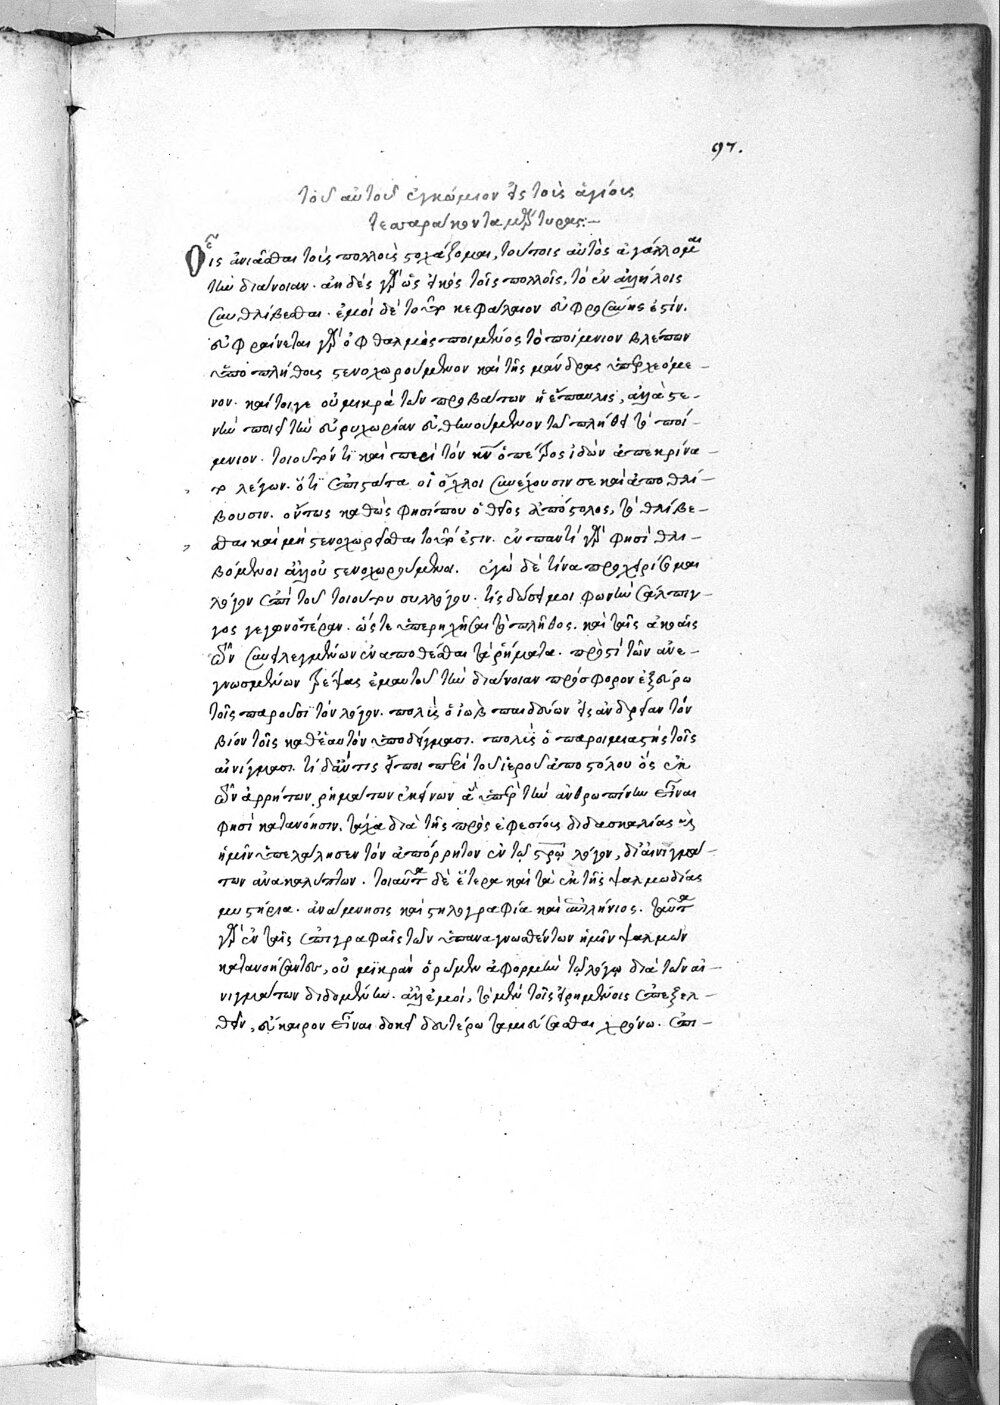 97.
τοῦ αὐτοῦ ἐγκώμιον εἰς τοὺς ἁγίους
τεσσαράκοντα μάρτυρας:—
Οἷς ἀνιᾶσθαι τοὺς πολλοὺς στοχάζομαι, τούτοις αὐτὸς ἀγάλλομαι
τὴν διάνοιαν. ἀηδὲς γὰρ ὡς εἰκὸς τοῖς πολλοῖς, τὸ ἐν ἀλλήλοις
συνθλίβεσθαι. ἐμοὶ δὲ τοῦτο κεφάλαιον εὐφροσύνης ἐστίν.
εὐφραίνεται γὰρ ὀφθαλμὸς ποιμένος τὸ ποίμνιον βλέπων
ὑπὸ πλήθους στενοχωρούμενον καὶ τῆς μάνδρας ὑπερχεόμε-
νον. καίτοιγε οὐ μικρὰ τῶν προβάτων ἡ ἔπαυλις, ἀλλὰ στε-
νὴν ποιεῖ τὴν εὐρυχωρίαν εὐθηνούμενον τῷ πλήθει τὸ ποί-
μνιον. τοιοῦτόν τι καὶ περὶ τὸν κν ὁ πέτρος ἰδὼν ἀπεκρίνα-
το λέγων. ὅτι ἐπιστάτα οἱ ὄχλοι συνέχουσιν σε καὶ ἀποθλί-
βουσιν. οὕτως καθὼς φησί που ὁ θεῖος ἀπόστολος, τὸ θλίβε-
σθαι καὶ μὴ στενοχωρεῖσθαι τοῦτό ἐστιν. ἐν παντὶ γάρ φησι θλι-
βόμενοι ἀλλ' οὐ στενοχωρούμενοι. ἐγὼ δὲ τίνα προχειρίσωμαι
λόγον ἐπὶ τοῦ τοιούτου συλλόγου. τίς δώσει μοι φωνὴν σάλπιγ-
γος γεγωνοτέραν. ὥστε ὑπερηχῆσαι τὸ πλῆθος. καὶ ταῖς ἀκοαῖς
τῶν συνειλεγμένων ἐναποθέσθαι τὰ ῥήματα. πρὸς τί τῶν ἀνε-
γνωσμένων τρέψας ἐμαυτοῦ τὴν διάνοιαν πρόσφορον ἐξεύρω
τοῖς παροῦσι τὸν λόγον. πολὺς ὁ ἰὼβ παιδεύων εἰς ἀνδρείαν τὸν
βίον τοῖς καθ' ἑαυτὸν ὑποδείγμασι. πολὺς ὁ παροιμιαστὴς τοῖς
αἰνίγμασι. τί δ' ἄν τις εἴποι περὶ τοῦ ἱεροῦ ἀποστόλου ὃς ἐκ
τῶν ἀρρήτων ῥημάτων ἐκείνων ἃ ὑπὲρ τὴν ἀνθρωπίνην εἶναι
φησὶ κατανόησιν. τάχα διὰ τῆς πρὸς ἐφεσίους διδασκαλίας καὶ
ἡμῖν ὑπελάλησεν τὸν ἀπόρρητον ἐν τῷ στρῶ λόγον, δι' αἰνιγμά-
των ἀνακαλύπτων. τοιαῦτα δὲ ἕτερα καὶ τὰ ἐκ τῆς ψαλμωδίας
μυστήρια. ἀνάμνησις καὶ στηλογραφία καὶ ἐπιλήνιος. ταῦτα
γὰρ ἐν ταῖς ἐπιγραφαῖς τῶν ὑπαναγνωσθέντων ἡμῖν ψαλμῶν
κατανοήσαντες, οὐ μικρὰν ὁρῶμεν ἀφορμὴν τῷ λόγῳ διὰ τῶν αἰ-
νιγμάτων διδομένην. ἀλλ' ἐμοὶ, τὸ μὲν τοῖς εἰρημένοις ἐπεξελ-
θεῖν, εὔκαιρον εἶναι δοκεῖ δευτέρω ταμιεύσασθαι χρόνω. ἐπι-